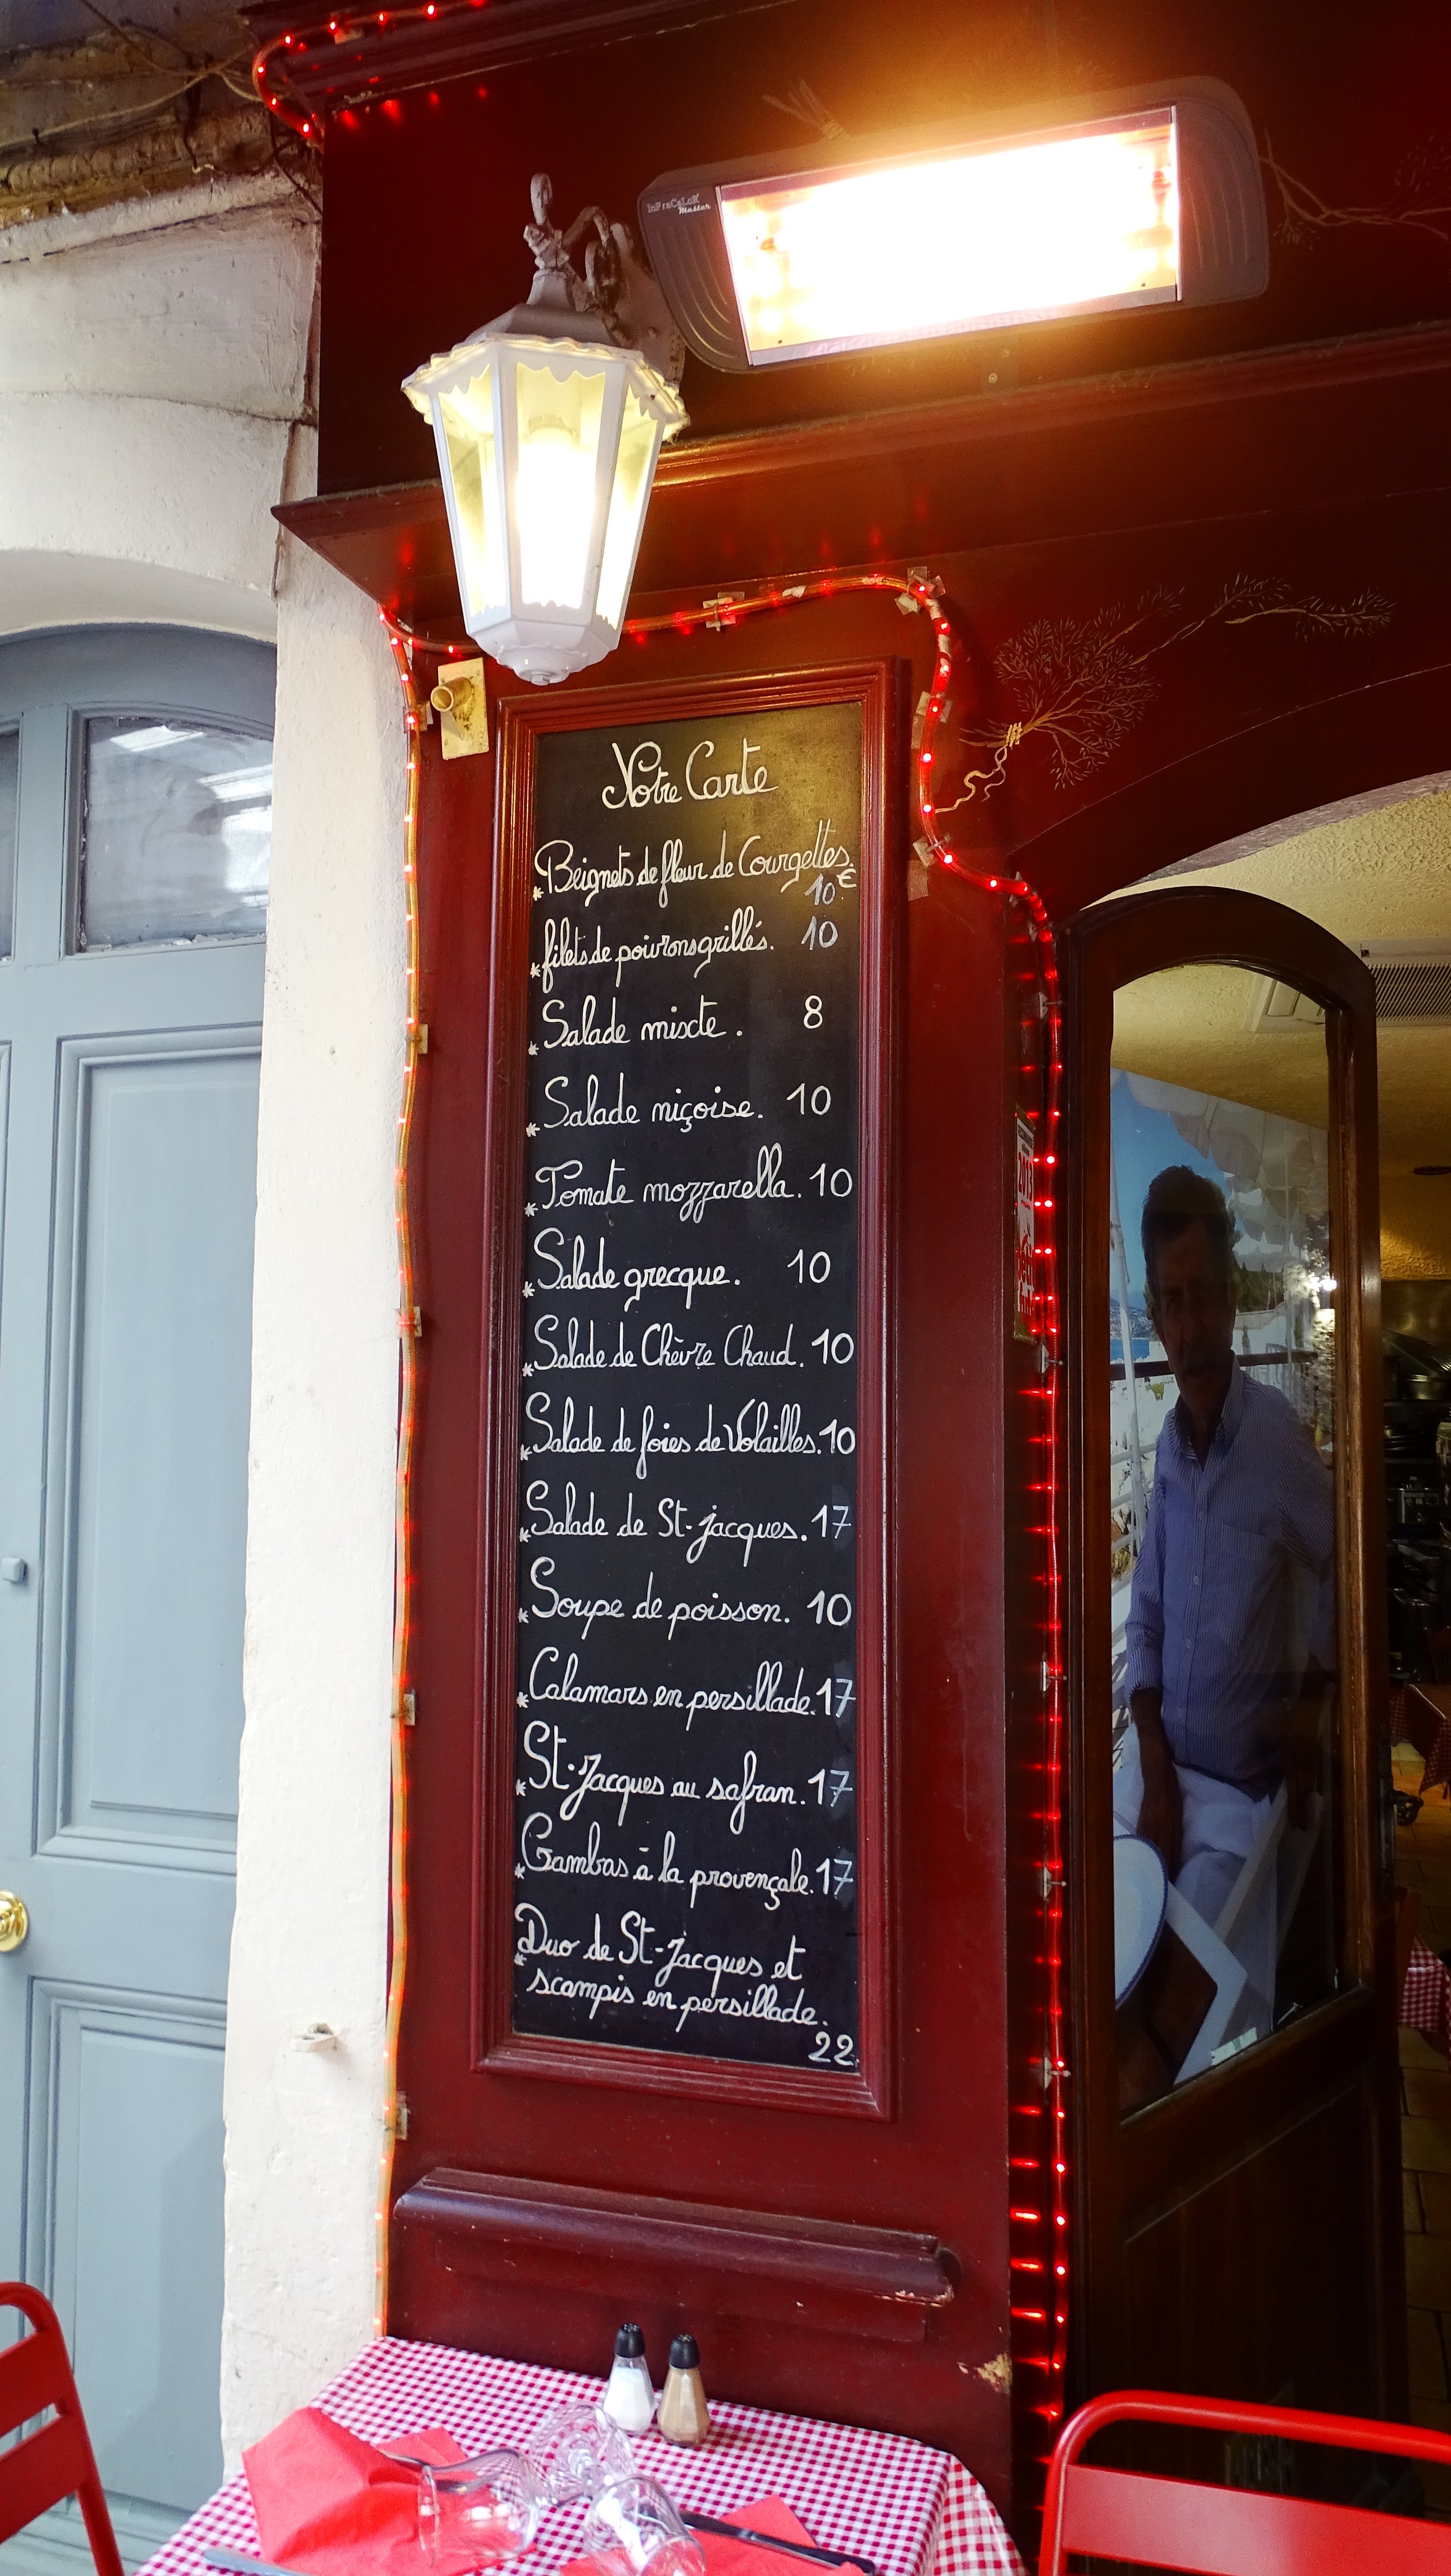 InFraCaLoR
Master
Notre Carte
* Beignets de fleur de Courgettes.
10 €
* filets de poivrons grillés. 10
* Salade mixte. 8
* Salade niçoise. 10
* Tomate mozzarella. 10
* Salade grecque. 10
* Salade de Chèvre Chaud. 10
* Salade de foies de Volailles. 10
* Salade de St-jacques. 17
* Soupe de poisson. 10
* Calamars en persillade. 17
* St-Jacques au safran. 17
* Gambas à la provençale. 17
* Duo de St-Jacques et
scampis en persillade.
22